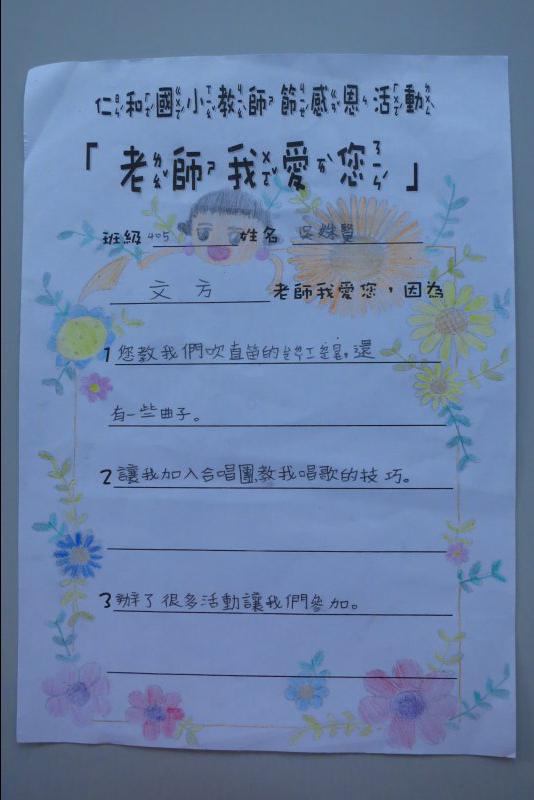 仁和國小教師節感恩活動
「老師我愛您」
班級 405 姓名 吳姝賢
文方 老師我愛您，因為
1 您教我們吹直笛的 還
有一些曲子。
2 讓我加入合唱團教我唱歌的技巧。
3 辦了很多活動讓我們參加。